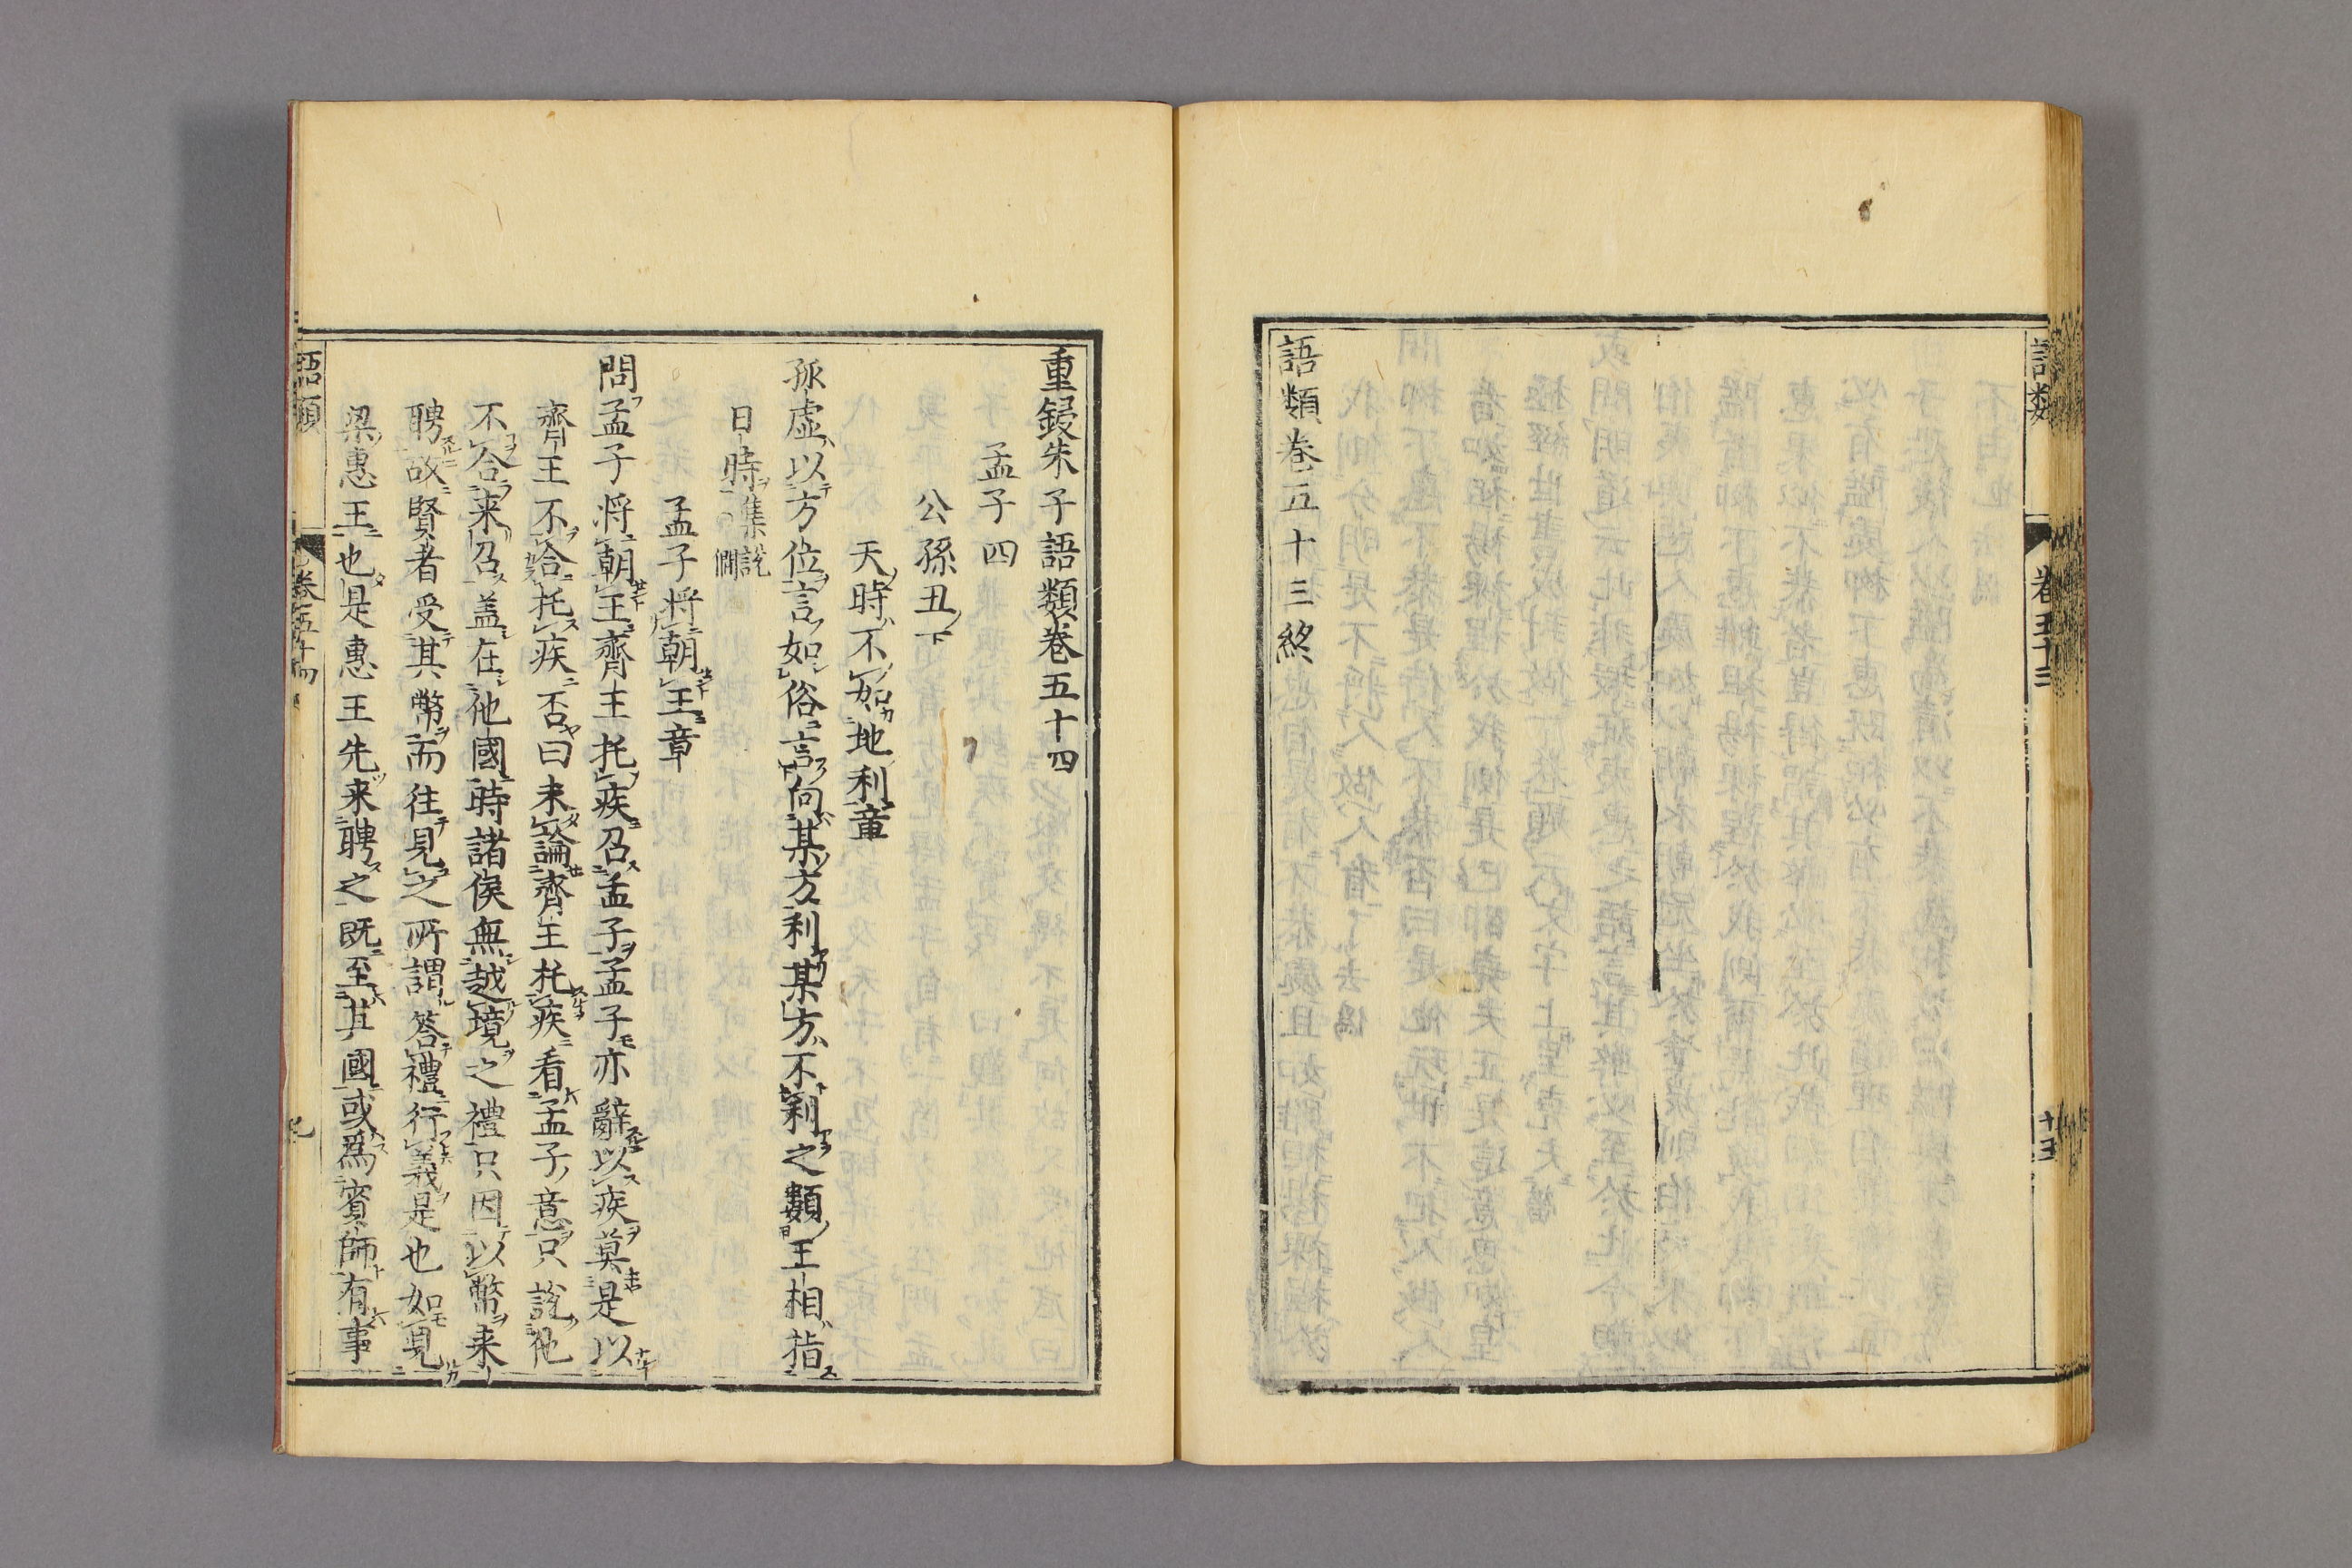 語類
卷五十三
十五
語類卷五十三終
重鋟朱子語類卷五十四
孟子四
公孫丑下
天時不如地利章
孤虛以方位言如俗言向某方利某方不利之類王相指
日時集說
僩
孟子將朝王章
問孟子将朝王齊王托疾召孟子孟子亦辭以疾莫是以
齊王不合托疾否曰未論齊王托疾看孟子意只說他
不合来召盖在他國時諸侯無越境之禮只因以幣来
聘故賢者受其幣而往見之所謂答禮行義是也如見
梁惠王也是惠王先来聘之既至其國或爲賓師有事
語類
卷五十四